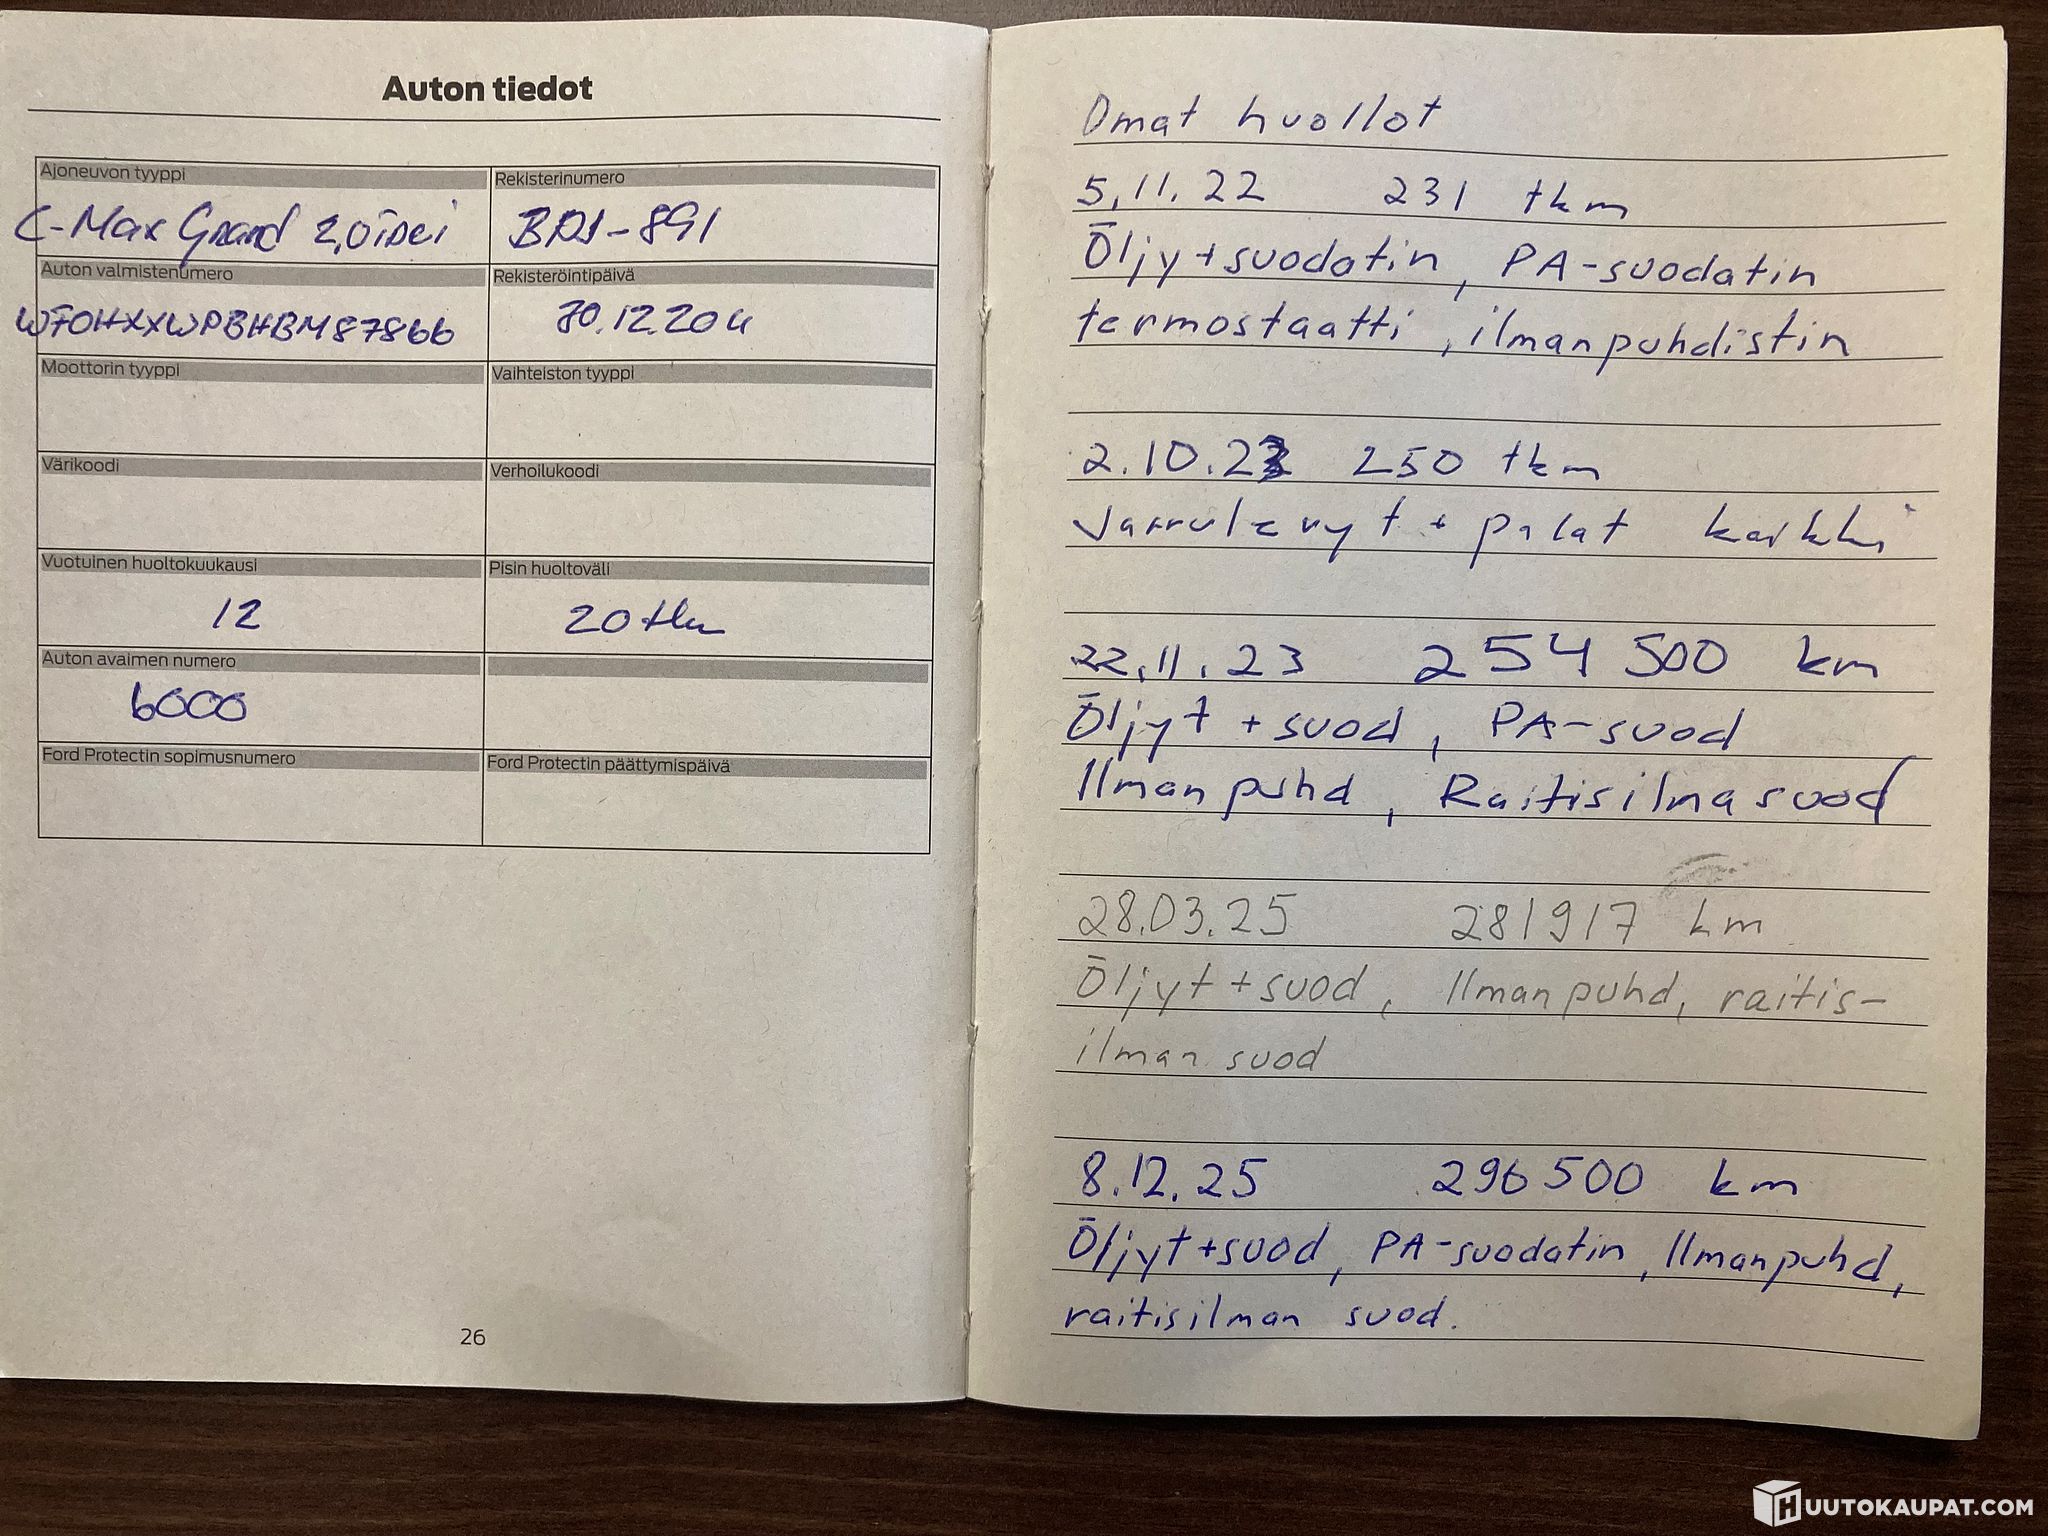 Auton tiedot
Ajoneuvon tyyppi
C-Max Grand 2,0 TDCi
Rekisterinumero
-891
Auton valmistenumero
WF0HXXWPBHBM87866
Rekisteröintipäivä
30.12.2011
Moottorin tyyppi
Vaihteiston tyyppi
Värikoodi
Verhoilukoodi
Vuotuinen huoltokuukausi
12
Pisin huoltoväli
20 tkm
Auton avaimen numero
6000
Ford Protectin sopimusnumero
Ford Protectin päättymispäivä
26
Omat huollot
5.11.22 231 tkm
Öljy+suodatin, PA-suodatin
termostaatti, ilmanpuhdistin
2.10.23 250 tkm
Jarrulevyt + palat kaikki
22.11.23 254 500 km
Öljyt + suod, PA-suod
Ilmanpuhd, Raitisilmasuod
28.03.25 281917 km
Öljyt+suod, Ilmanpuhd, raitis-
ilman suod
8.12.25 296 500 km
Öljyt+suod, PA-suodatin, Ilmanpuhd,
raitisilman suod.
HUUTOKAUPAT.COM